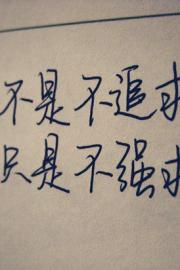 不是不追求
只是不强求